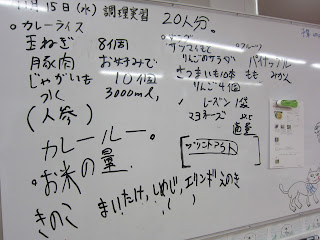 月15日(水) 調理実習 20人分。
○カレーライス
玉ねぎ 8個
豚肉 お好みで
じゃがいも 10個
水 3000ml,
(人参)
カレールー。
○お米の量.
きのこ まいたけ,しめじ,エリンギ,えのき
( )
サツマイモと
りんごのサラダ
さつまいも10本
りんご4個
レーズン 1袋
マヨネーズ
適量
プリントアウト
○フルーツ
パイナップル
もも みかん